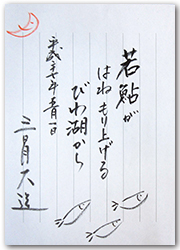 若鮎が
はねもり上げる
びわ湖から
平成二十七年五月一日
三月大造